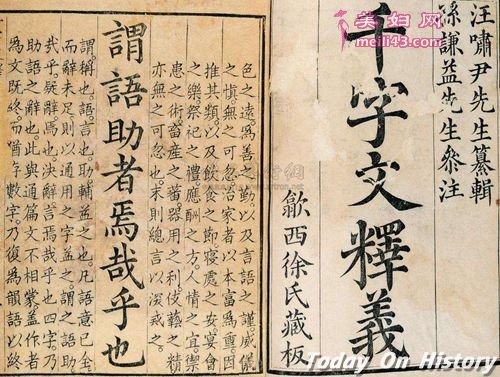 汪嘯尹先生纂輯
孫謙益先生叅注
千字文釋義
歙西徐氏藏板
色之遠。為善之勤以及言語之謹。威儀
之慎。無之可忽。治家者以本富為重。因
推其類。以及飲食之節寢處之安。宴會
之樂。祭祀之禮。應酬之方。人情之宜禦
患之術。畜產之蕃。器用之利。伎藝之精
亦無之可忽也。末則總言以深戒之。
謂語助者焉哉乎也
謂稱也。語言也。助輔益之也。凡語意已全
而辭未足則以通用之字益之。謂之語助。
哉乎疑辭。焉也決辭。言焉哉乎也四字乃
助語之辭也。此與通篇文不相蒙。蓋作者
為文既終而字數字乃復為韻語以終
美妇网
meili43.com
Today On History